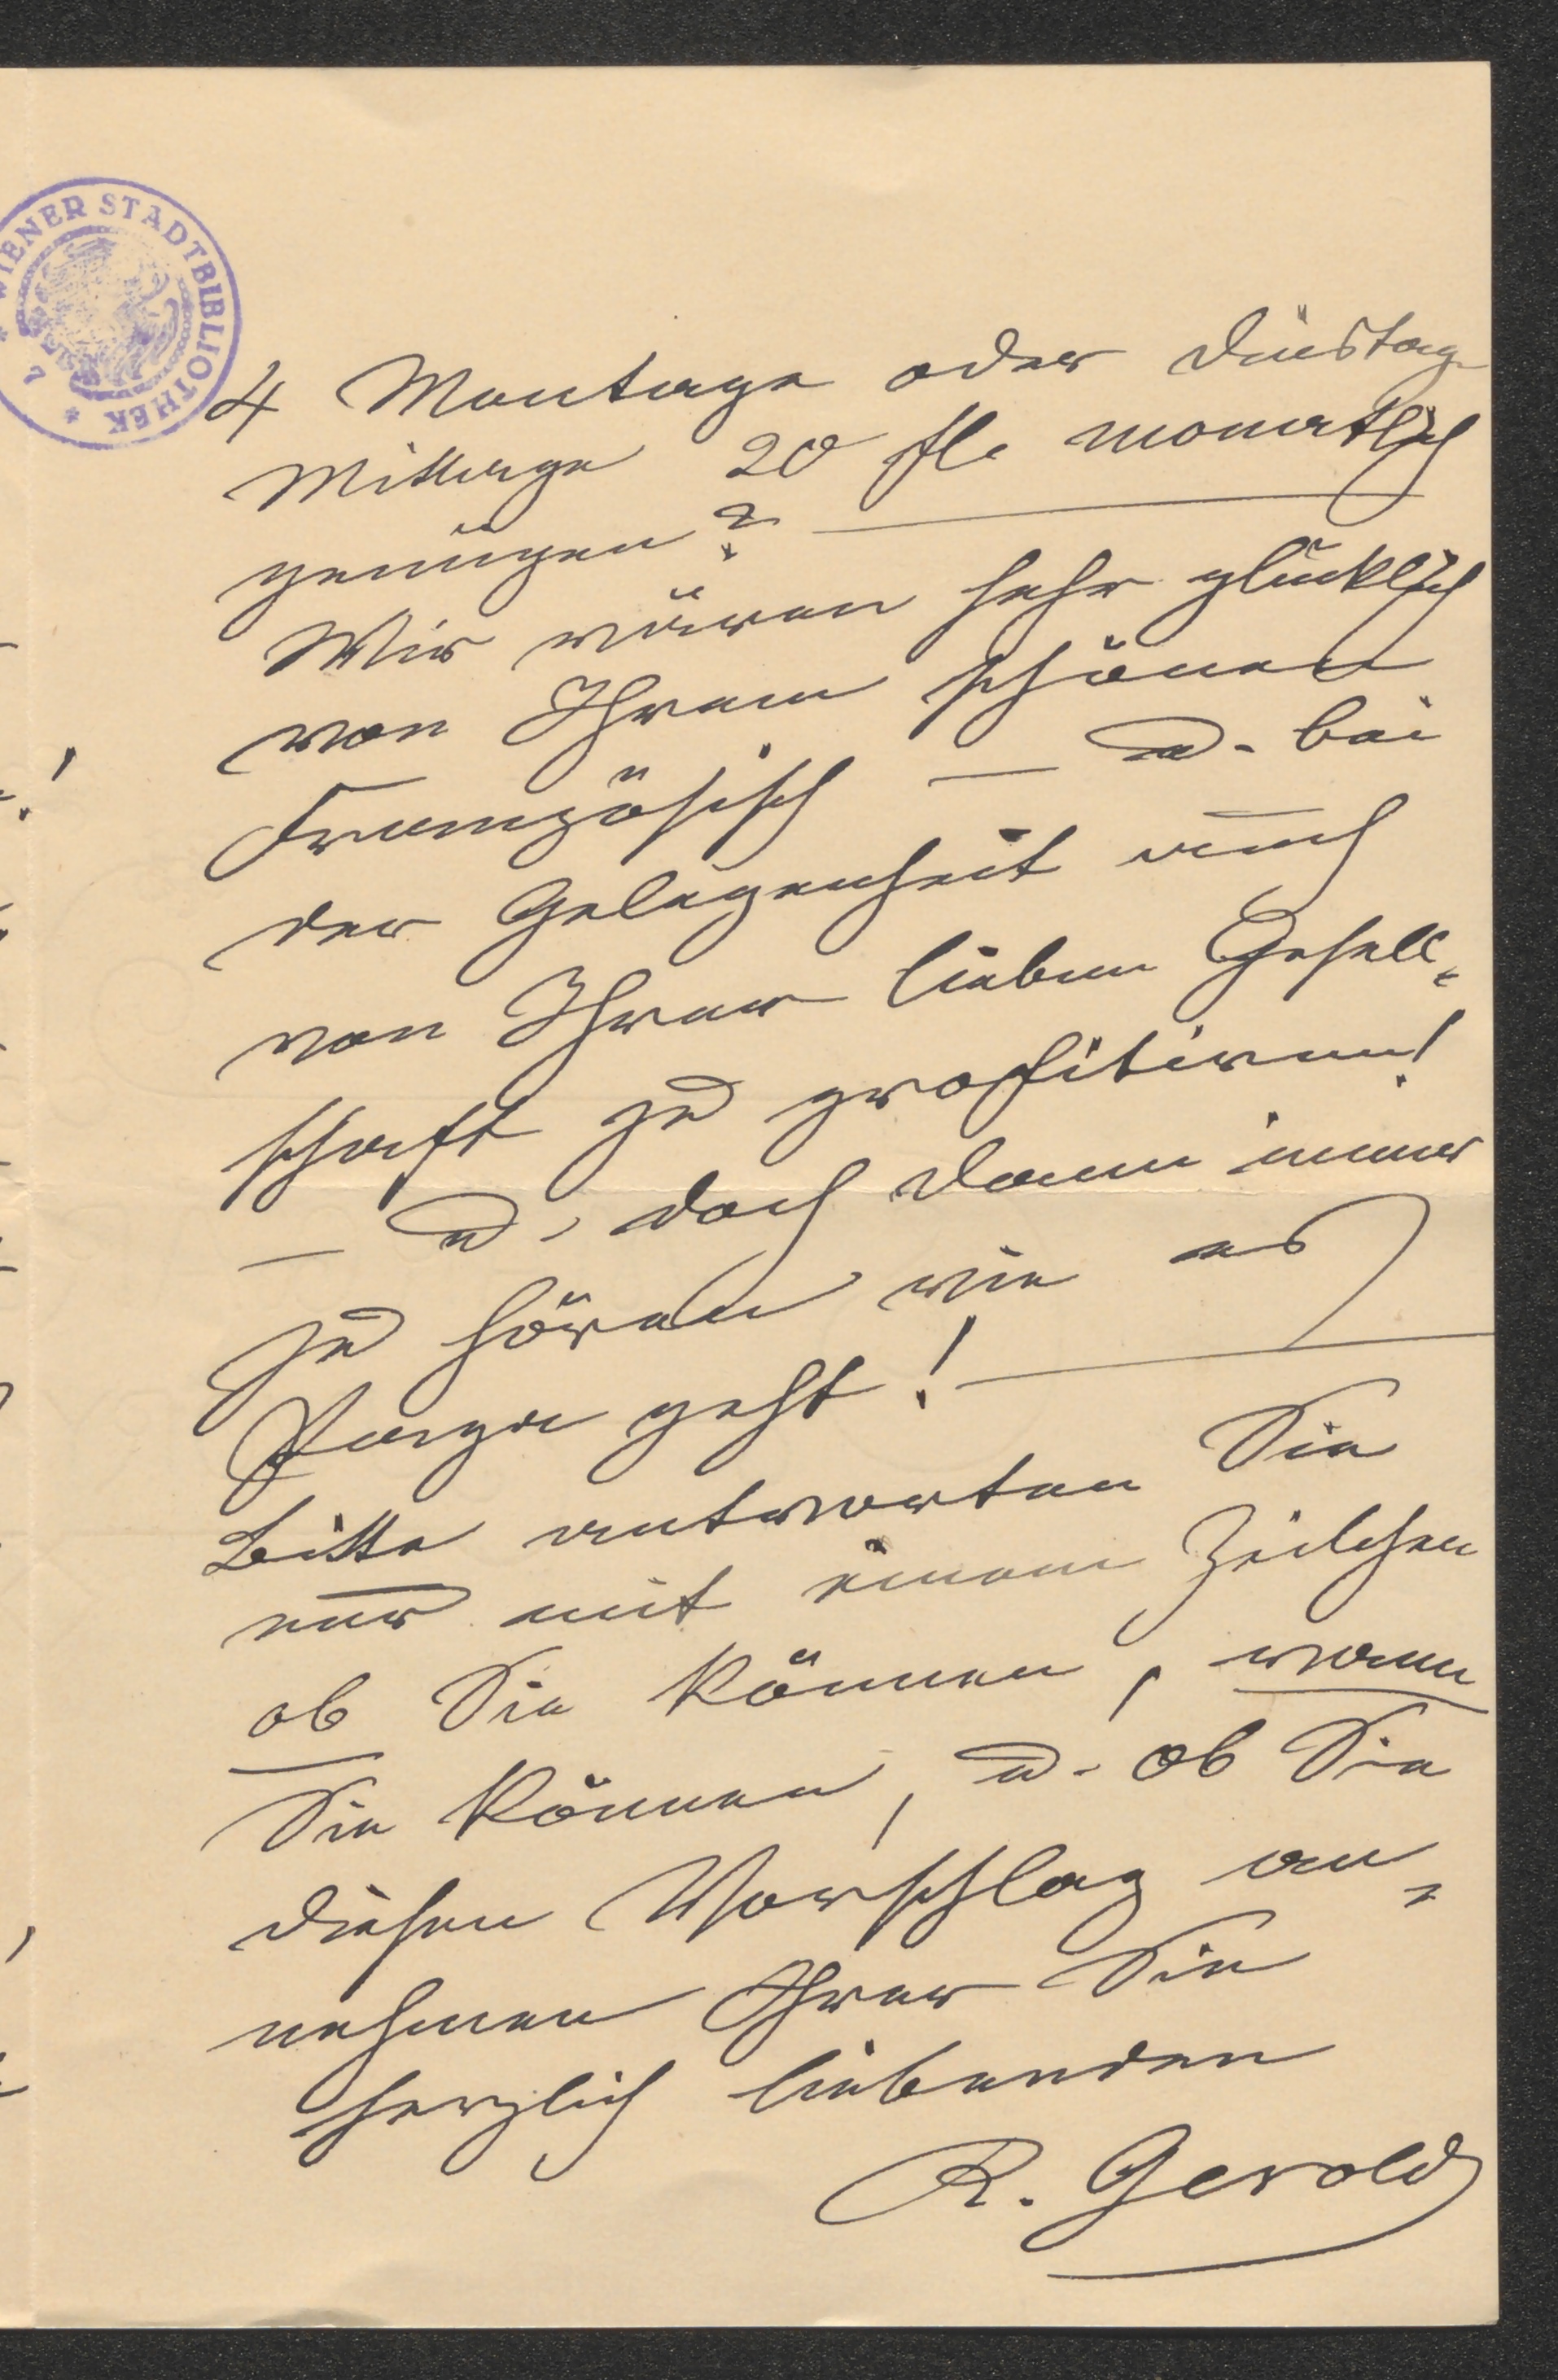 WIENER STADTBIBLIOTHEK
4 Montage oder Dinstag
Mittage 20 fl. monatlich
genügen?
Wir wären sehr glücklich
von Ihrem schönen
Französisch — u. bei
der Gelegenheit auch
von Ihrer lieben Gesell-
schaft zu profitiren!
— u. doch dann immer
zu hören wie es
geht!
Bitte antworten Sie
nur mit einem Zeilchen
ob Sie können, wann
Sie können, u. ob Sie
diesen Vorschlag an-
nehmen Ihrer Sie
herzlich liebenden
R. Gerold